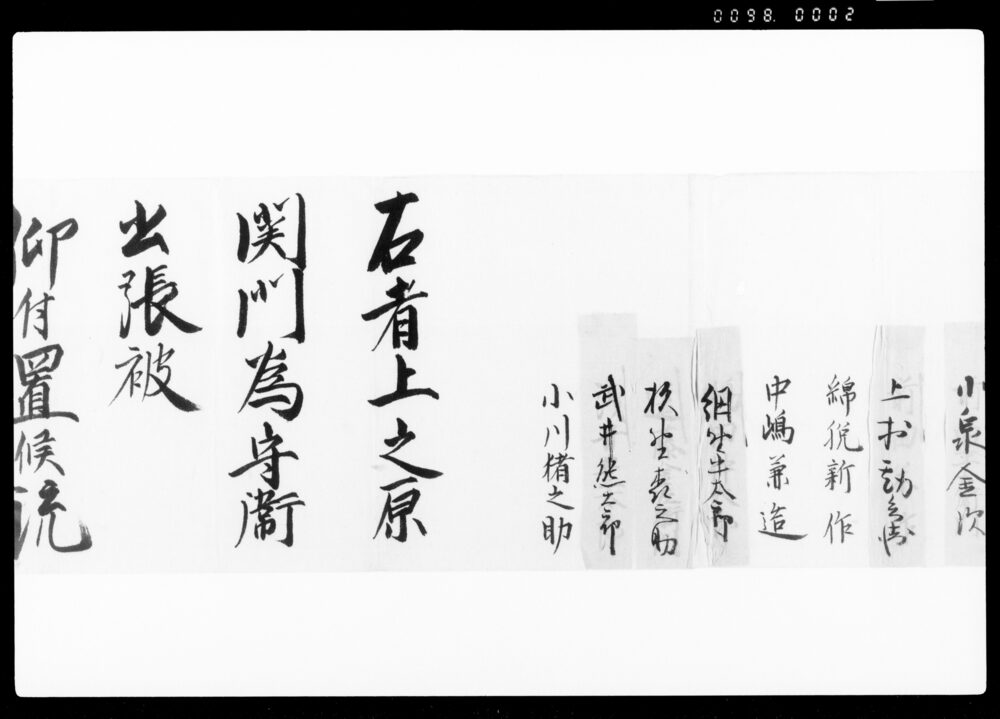 0098. 0002
小泉金次
上村勘兵衛
綿貫新作
中嶋兼造
細生牛太郎
生森之助
武井熊太郎
小川楮之助
右者上之原
関門為守衛
出張被
仰付置候流